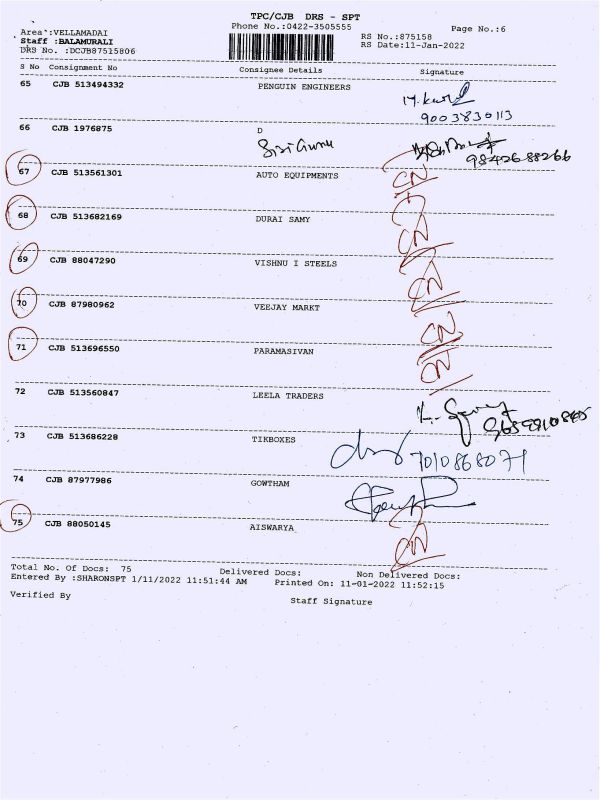 TPC/CJB DRS - SPT
Area :VELLAMADAI Phone No.:0422-3505555 Page No.:6
Staff :BALAMURALI RS No.:875158
DRS No. :DCJB87515806 RS Date:11-Jan-2022
S No Consignment No Consignee Details Signature
65 CJB 513494332 PENGUIN ENGINEERS
9003830113
66 CJB 1976875 D
9842688266
67 CJB 513561301 AUTO EQUIPMENTS CN
68 CJB 513682169 DURAI SAMY CN
69 CJB 88047290 VISHNU I STEELS CN
70 CJB 87980962 VEEJAY MARKT CN
71 CJB 513696550 PARAMASIVAN CN
72 CJB 513560847 LEELA TRADERS
73 CJB 513686228 TIKBOXES
74 CJB 87977986 GOWTHAM
75 CJB 88050145 AISWARYA CN
Total No. Of Docs: 75 Delivered Docs: Non Delivered Docs:
Entered By :SHARONSPT 1/11/2022 11:51:44 AM Printed On: 11-01-2022 11:52:15
Verified By Staff Signature